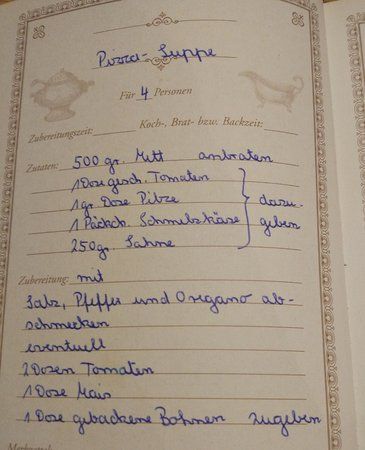 Pizza-Suppe
Für 4 Personen
Zubereitungszeit: Koch-, Brat- bzw. Backzeit:
Zutaten: 500 gr. Mett anbraten
1 Dose gesch. Tomaten
1 gr. Dose Pilze dazu-
1 Päckch. Schmelzkäse geben
250gr. Sahne
Zubereitung: mit
Salz, Pfeffer und Oregano ab-
schmecken
eventuell
2 Dosen Tomaten
1 Dose Mais
1 Dose gebackene Bohnen zugeben